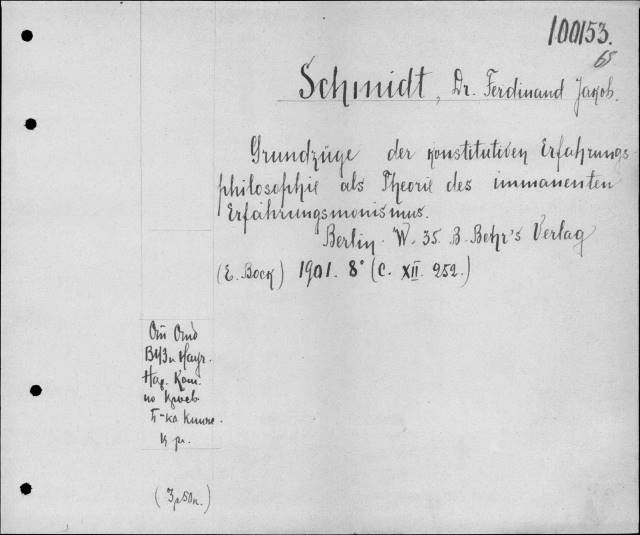 100153.
65
Schmidt, Dr. Ferdinand Jakob.
Grundzüge der konstitutiven Erfahrungs
philosophie als Theorie des immanenten
Erfahrungsmonismus.
Berlin. W. 35. B. Behr's Verlag
(E. Bock) 1901. 8° (C. XII. 252.)
От Отд
ВУЗ и Науч.
Нар. Ком.
по Просв
П-ка Книж.
ц р.
(3 р 50 к.)